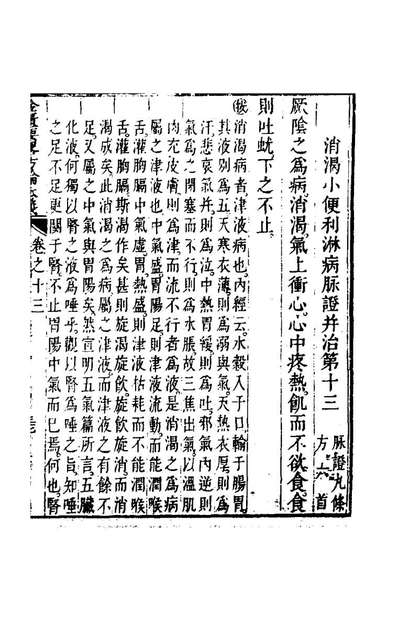 消渴小便利淋病脉證并治第十三
脉證九條
方六首
厥陰之為病消渴氣上衝心心中疼熱飢而不欲食食
則吐蚘下之不止
消渴病者津液病也內經云水穀入于口輸于腸胃
其液別為五天寒衣薄則為溺與氣天熱衣厚則為
汗悲哀氣并則為泣中熱胃緩則為吐邪氣內逆則
氣為之閉塞而不行則為水脹故三焦出氣以溫肌
肉充皮膚則為津而流不行者為液是消渴之為病
屬之津液也中氣盛胃陽足則津液流動而能潤喉
舌灌胸膈中氣虛胃熱盛則津液枯耗而不能潤喉
舌灌胸膈斯渴作矣甚則旋渴旋飲旋飲旋消而消
渴成矣此消渴之為病屬之津液而津液之有餘不
足又屬之中氣與胃陽矣然宣明五氣篇所言五臟
化液何獨以腎之液為唾乎觀以腎為唾之旨知唾
之足不足更關于腎不止胃陽中氣而已焉何也腎
卷之十三